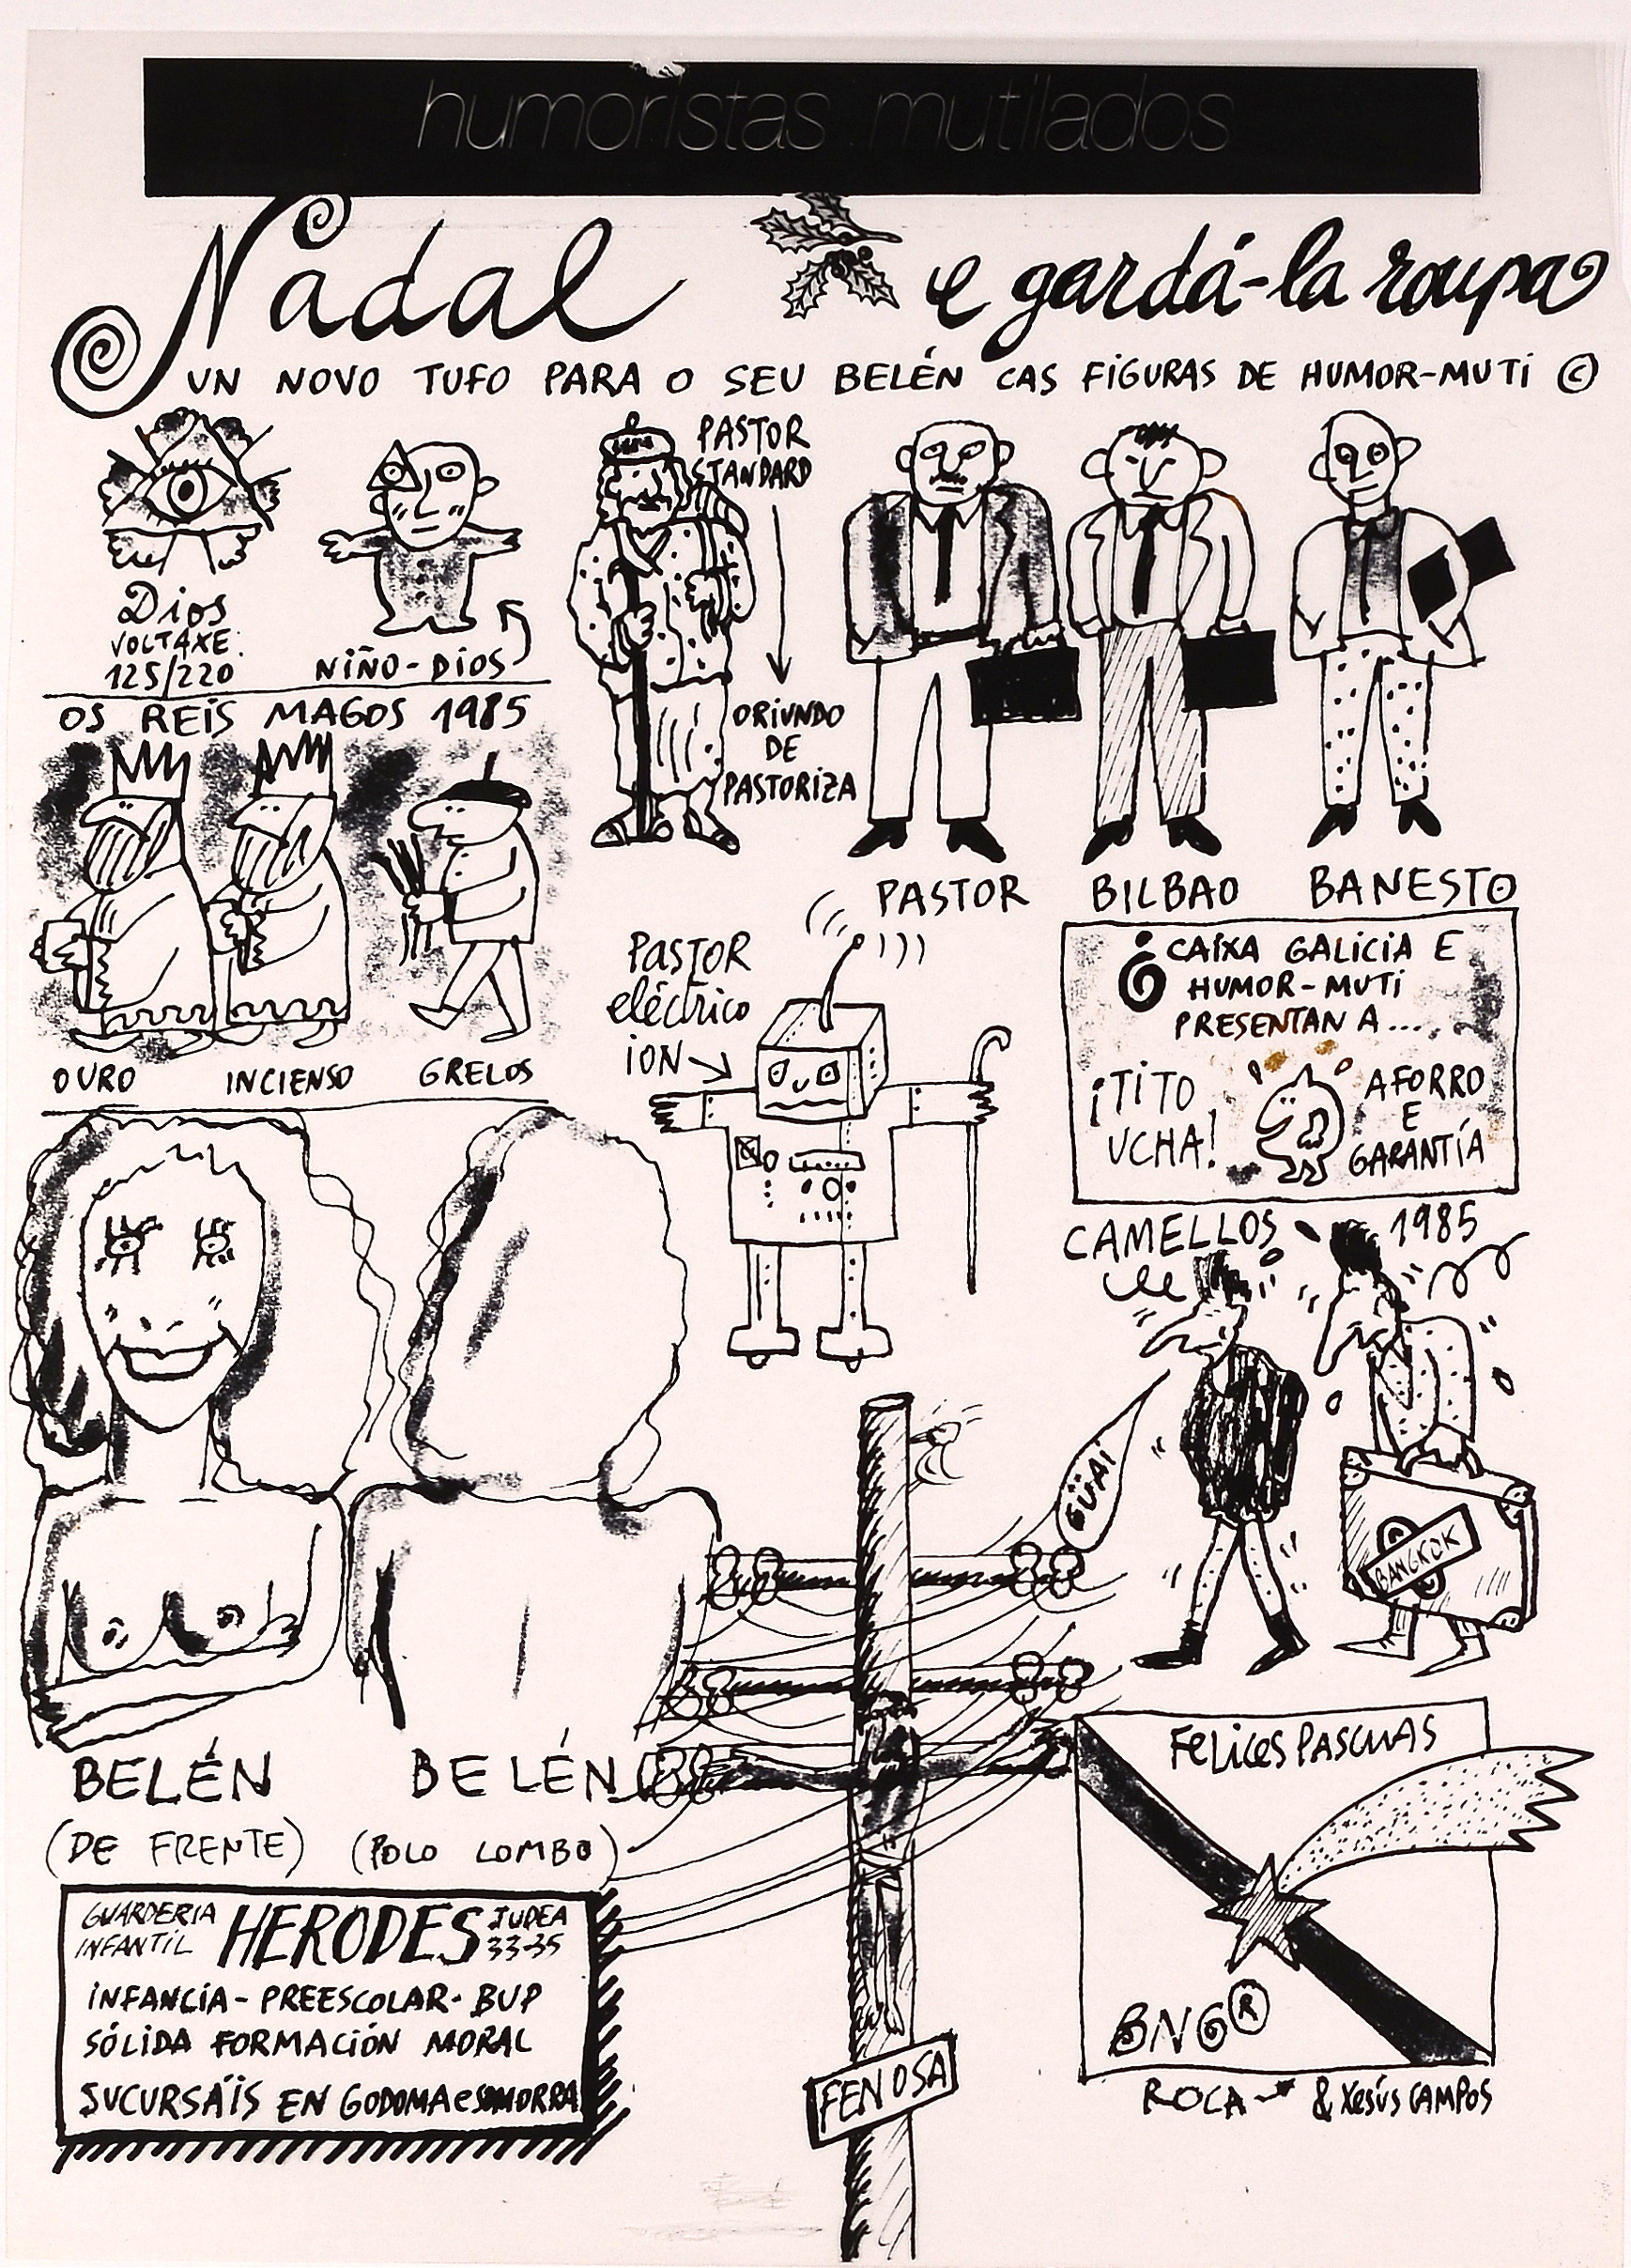 humoristas mutilados
Nadal e gardá-la roupa
UN NOVO TUFO PARA O SEU BELÉN CAS FIGURAS DE HUMOR-MUTI ©
Dios
VOLTAXE:
125/220
NIÑO-DIOS
PASTOR
STANDARD
ORIUNDO
DE
PASTORIZA
PASTOR
BILBAO
BANESTO
OS REIS MAGOS 1985
OURO
INCIENSO
GRELOS
PASTOR
eléctrico
ION
CAIXA GALICIA E
HUMOR-MUTI
PRESENTAN A....
¡TITO
UCHA!
AFORRO
E
GARANTÍA
CAMELLOS 1985
GÜAI
BANGKOK
BELÉN
(DE FRENTE)
BELÉN
(POLO LOMBO)
GUARDERIA
INFANTIL
HERODES
JUDEA
33-35
INFANCIA - PREESCOLAR - BUP
SÓLIDA FORMACIÓN MORAL
SUCURSÁIS EN GODOMA e SOMORRA
FENOSA
FELICES PASCUAS
BNG®
ROCA & Xesús CAMPOS